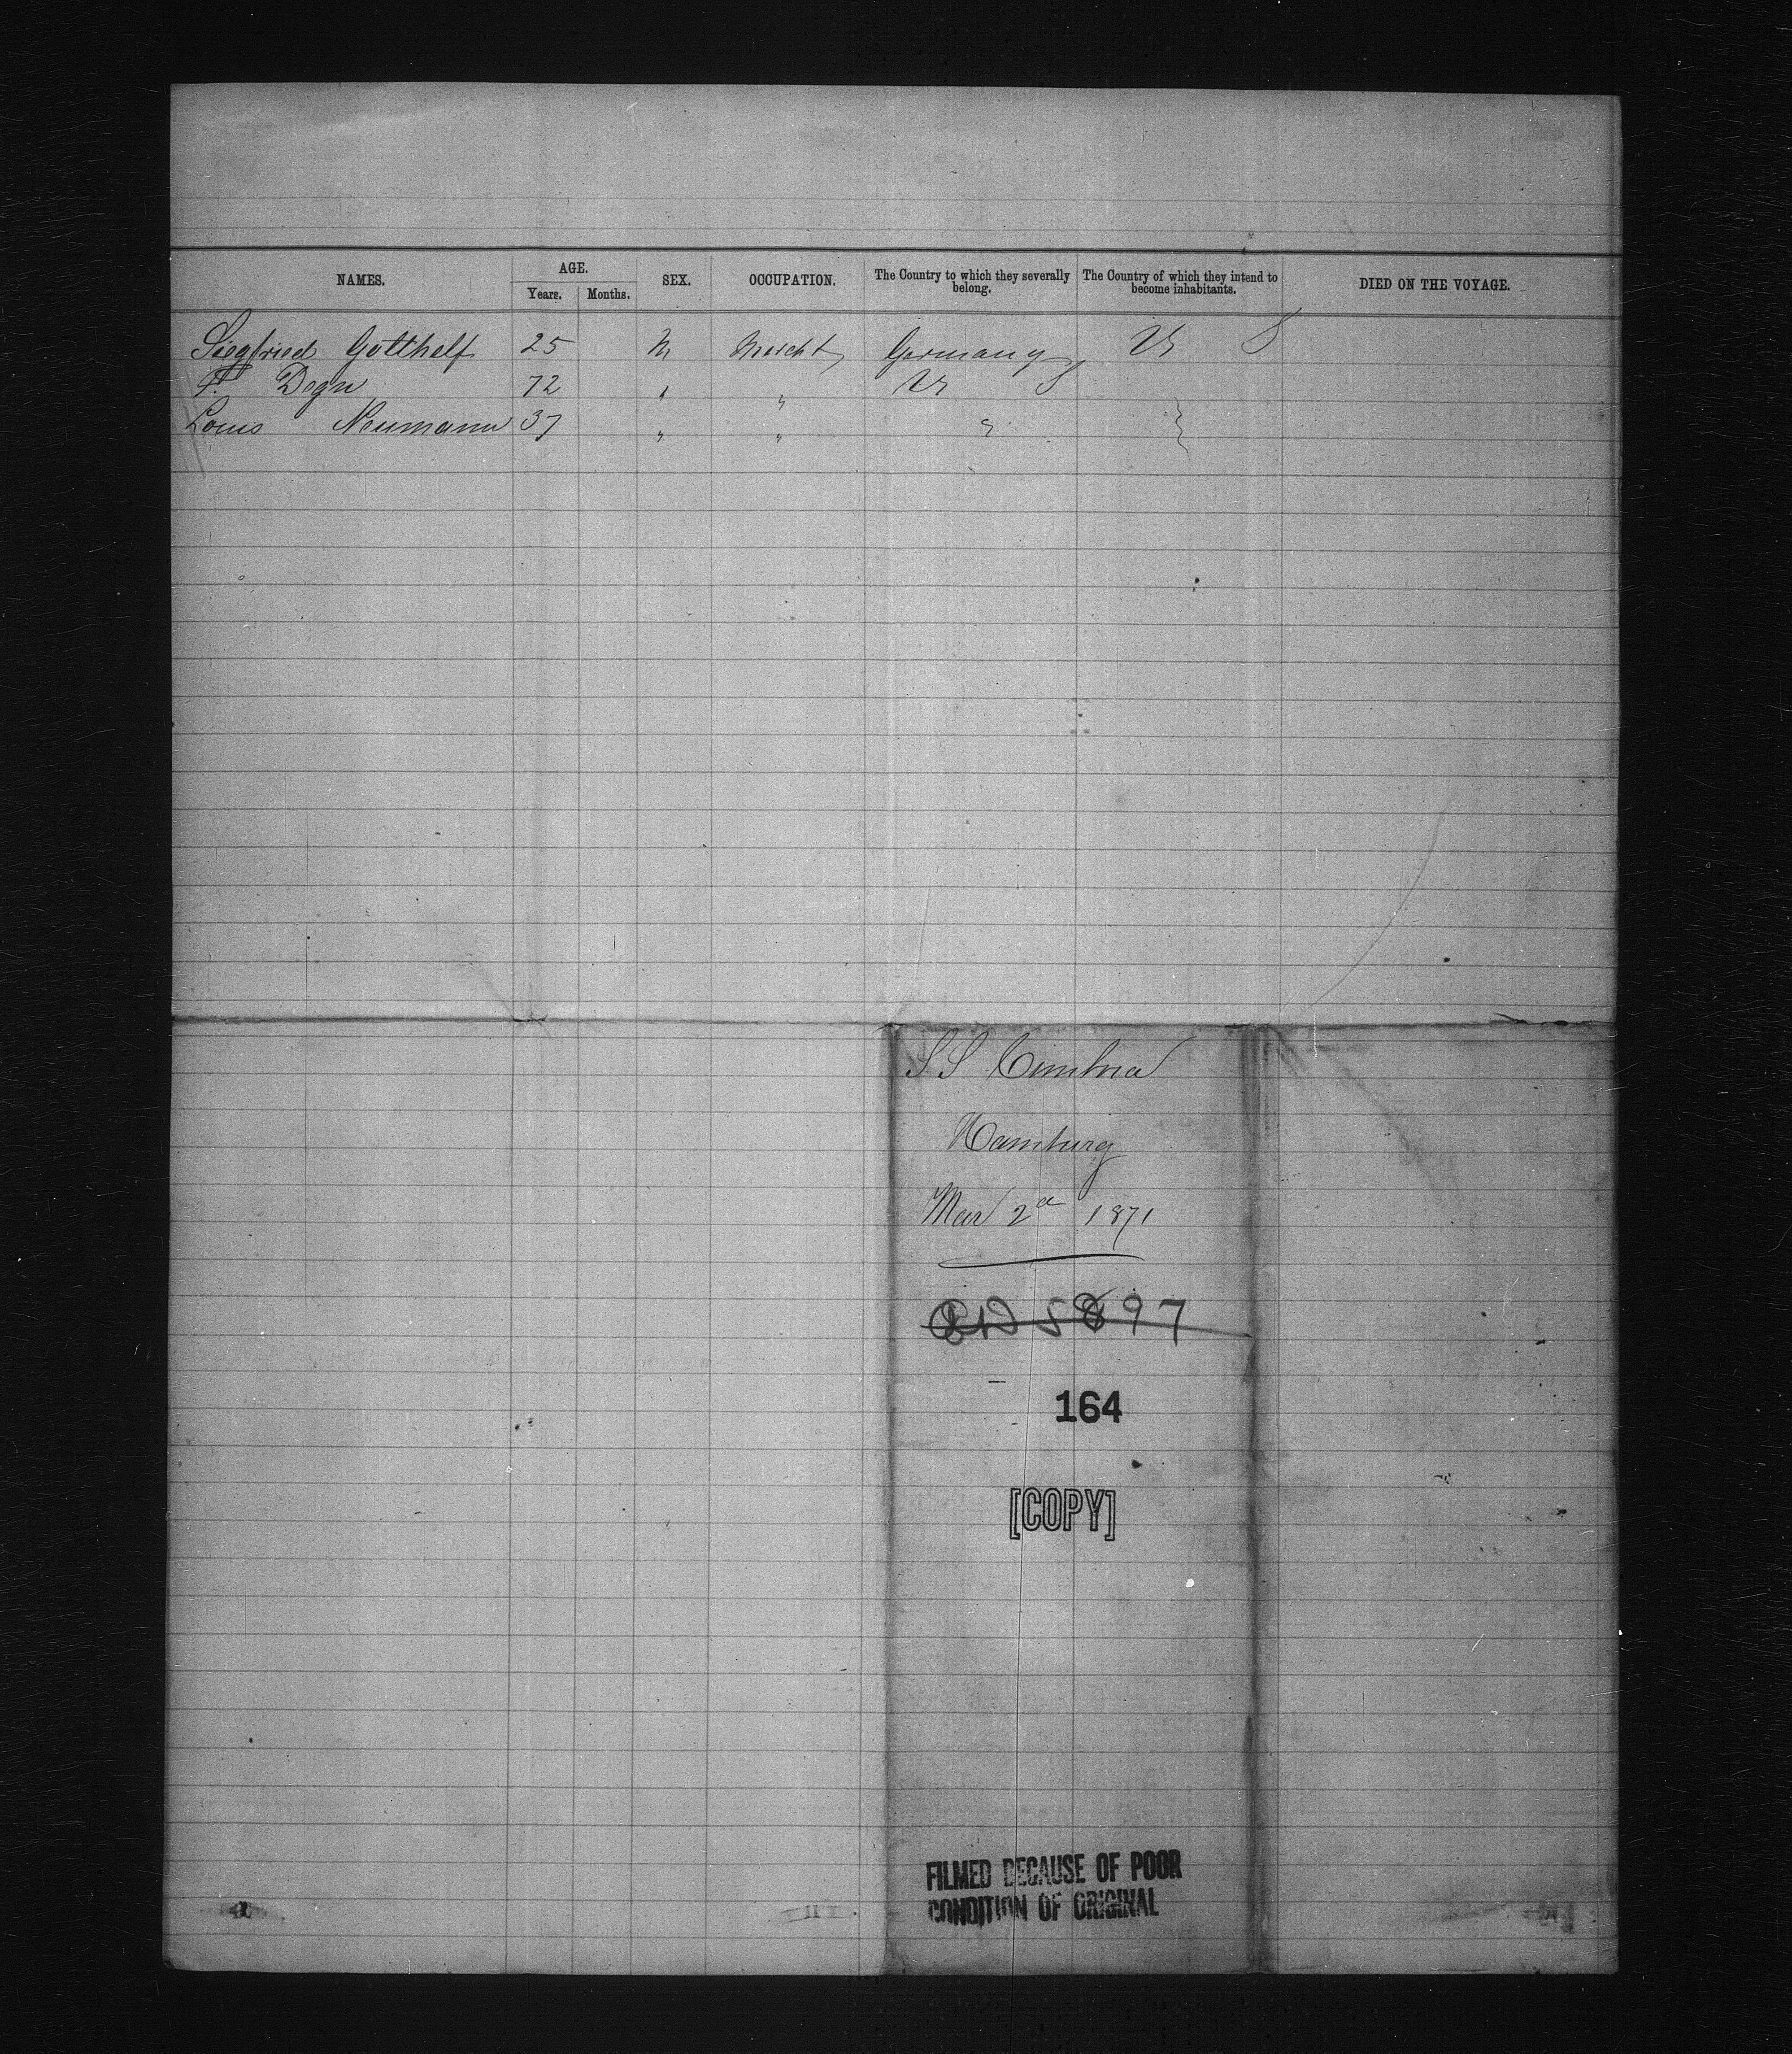 NAMES. AGE. SEX. OCCUPATION. The Country to which they severally belong. The Country of which they intend to become inhabitants. DIED ON THE VOYAGE.
Years. Months.
Siegfried Gotthelf 25 M Mercht Germany U S
F. Degn 72 " " U S
Louis Neumann 37 " " "
SS Cimbria
Hamburg
Mar 2d 1871
5897
164
[COPY]
FILMED BECAUSE OF POOR
CONDITION OF ORIGINAL